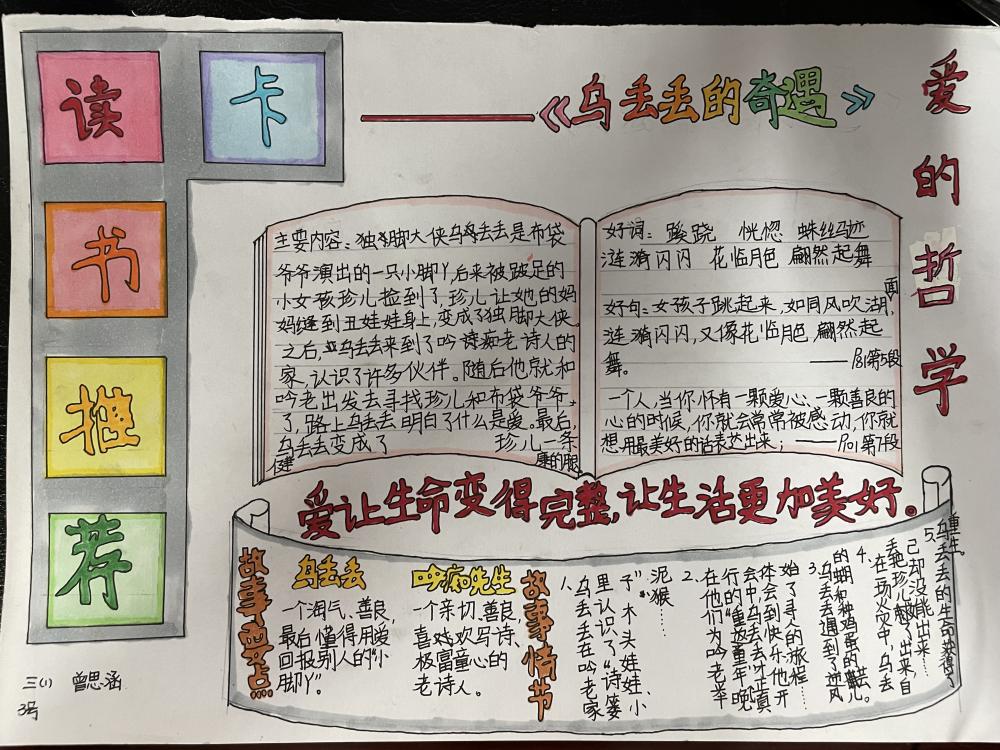 读书推荐卡
《乌丢丢的奇遇》
爱的哲学
主要内容：独脚大侠乌丢丢是布袋
爷爷演出的一只小脚丫，后来被跛足的
小女孩珍儿捡到了，珍儿让她的妈
妈缝到丑娃娃身上，变成了独脚大侠。
之后，乌丢丢来到了吟诗痴老诗人的
家，认识了许多伙伴。随后他就和
吟老出发去寻找珍儿和布袋爷爷。
了，路上乌丢丢明白了什么是爱。最后，
乌丢丢变成了 珍儿一条
健 康的腿
好词：蹊跷 恍惚 蛛丝马迹
涟漪闪闪 花临月色 翩然起舞
好句：女孩子跳起来，如同风吹湖面，
涟漪闪闪，又像花临月色，翩然起
舞。 ——P81第5段
一个人，当你怀有一颗爱心、一颗善良的
心的时候，你就会常常被感动，你就
想用最美好的话表达出来； ——P01第7段
爱让生命变得完整，让生活更加美好。
故事要点
乌丢丢
一个淘气、善良，
最后懂得用爱
回报别人的“小
脚丫”。
吟痴先生
一个亲切、善良，
喜戏欢写诗、
极富童心的
老诗人。
故事情节
1、乌丢丢在吟老家
里认识了“诗篓
子”木头娃娃、小
泥猴……
2、在他们为吟老举
行的“重返童年”晚
会中，乌丢丢才真正
体会到快乐，他开
始了寻人的旅程……
3、乌丢丢遇到了逆风
的蝴
4、在一场火灾中，乌丢
丢把珍儿救了出来，自
己却没能出来……
5、乌丢丢的生命获得了
重生。
三(1) 曾思涵
3号